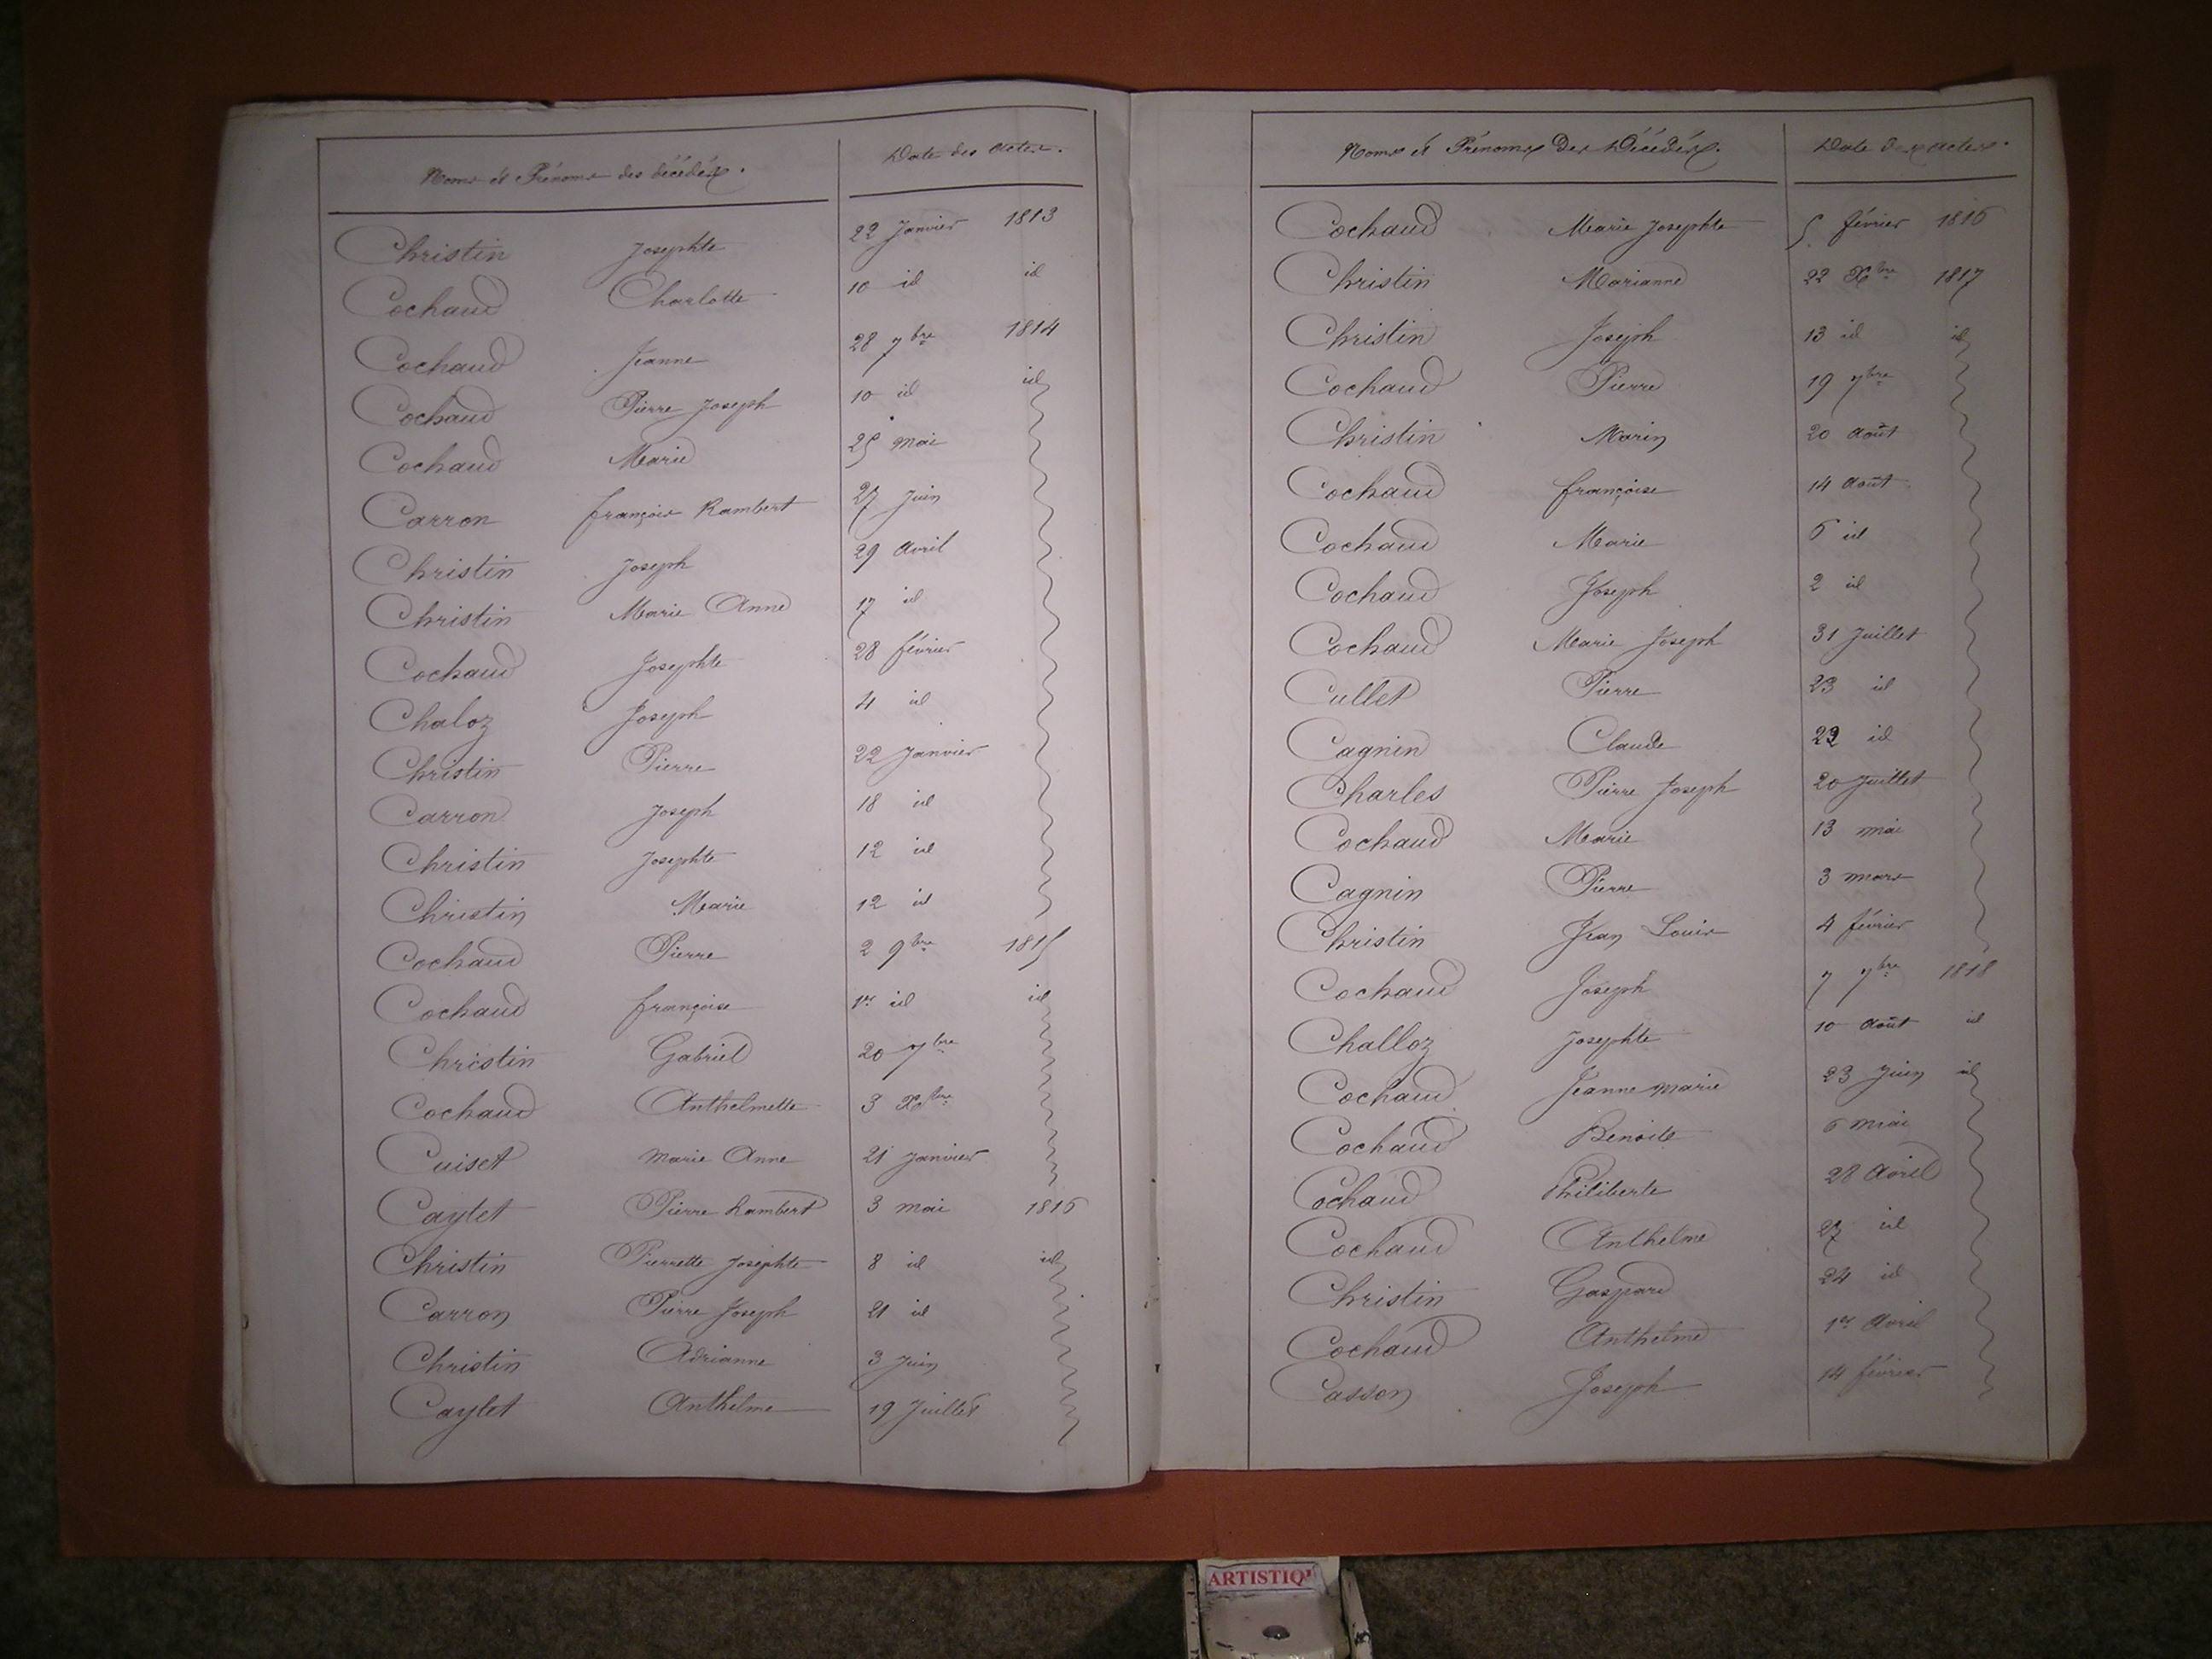 Noms et Prénoms des décédés. Date des actes.
Christin Josephte 22 Janvier 1813
Cochaud Charlotte 10 id id
Cochaud Jeanne 28 7bre 1814
Cochaud Pierre Joseph 10 id id
Cochaud Marie 25 mai
Carron françois Rambert 27 Juin
Christin Joseph 29 avril
Christin Marie Anne 17 id
Cochaud Josephte 28 février
Chaloz Joseph 4 id
Christin Pierre 22 Janvier
Carron Joseph 18 id
Christin Josephte 12 id
Christin Marie 12 id
Cochaud Pierre 2 9bre 1815
Cochaud françoise 1er id id
Christin Gabriel 20 7bre
Cochaud Anthelmette 3 Xbre
Cuiset Marie Anne 21 Janvier
Caylet Pierre Lambert 3 mai 1816
Christin Pierrette Josephte 8 id id
Carron Pierre Joseph 21 id
Christin Adrianne 3 Juin
Caylet Anthelme 19 Juillet
Noms et Prénoms Des Décédés. Date des actes.
Cochaud Marie Josephte 5 février 1816
Christin Marianne 22 Xbre 1817
Christin Joseph 13 id id
Cochaud Pierre 19 7bre
Christin Marin 20 août
Cochaud françoise 14 août
Cochaud Marie 6 id
Cochaud Joseph 2 id
Cochaud Marie Joseph 31 Juillet
Cullet Pierre 23 id
Cagnin Claude 22 id
Charles Pierre Joseph 20 Juillet
Cochaud Marie 13 mai
Cagnin Pierre 3 mars
Christin Jean Louis 4 février
Cochaud Joseph 7 7bre 1818
Challoz Josephte 10 août id
Cochaud Jeanne Marie 23 Juin id
Cochaud Benoite 6 mai
Cochaud Philiberte 28 Avril
Cochaud Anthelme 27 id
Christin Gaspard 24 id
Cochaud Anthelme 1er Avril
Casson Joseph 14 février
ARTISTIQ'